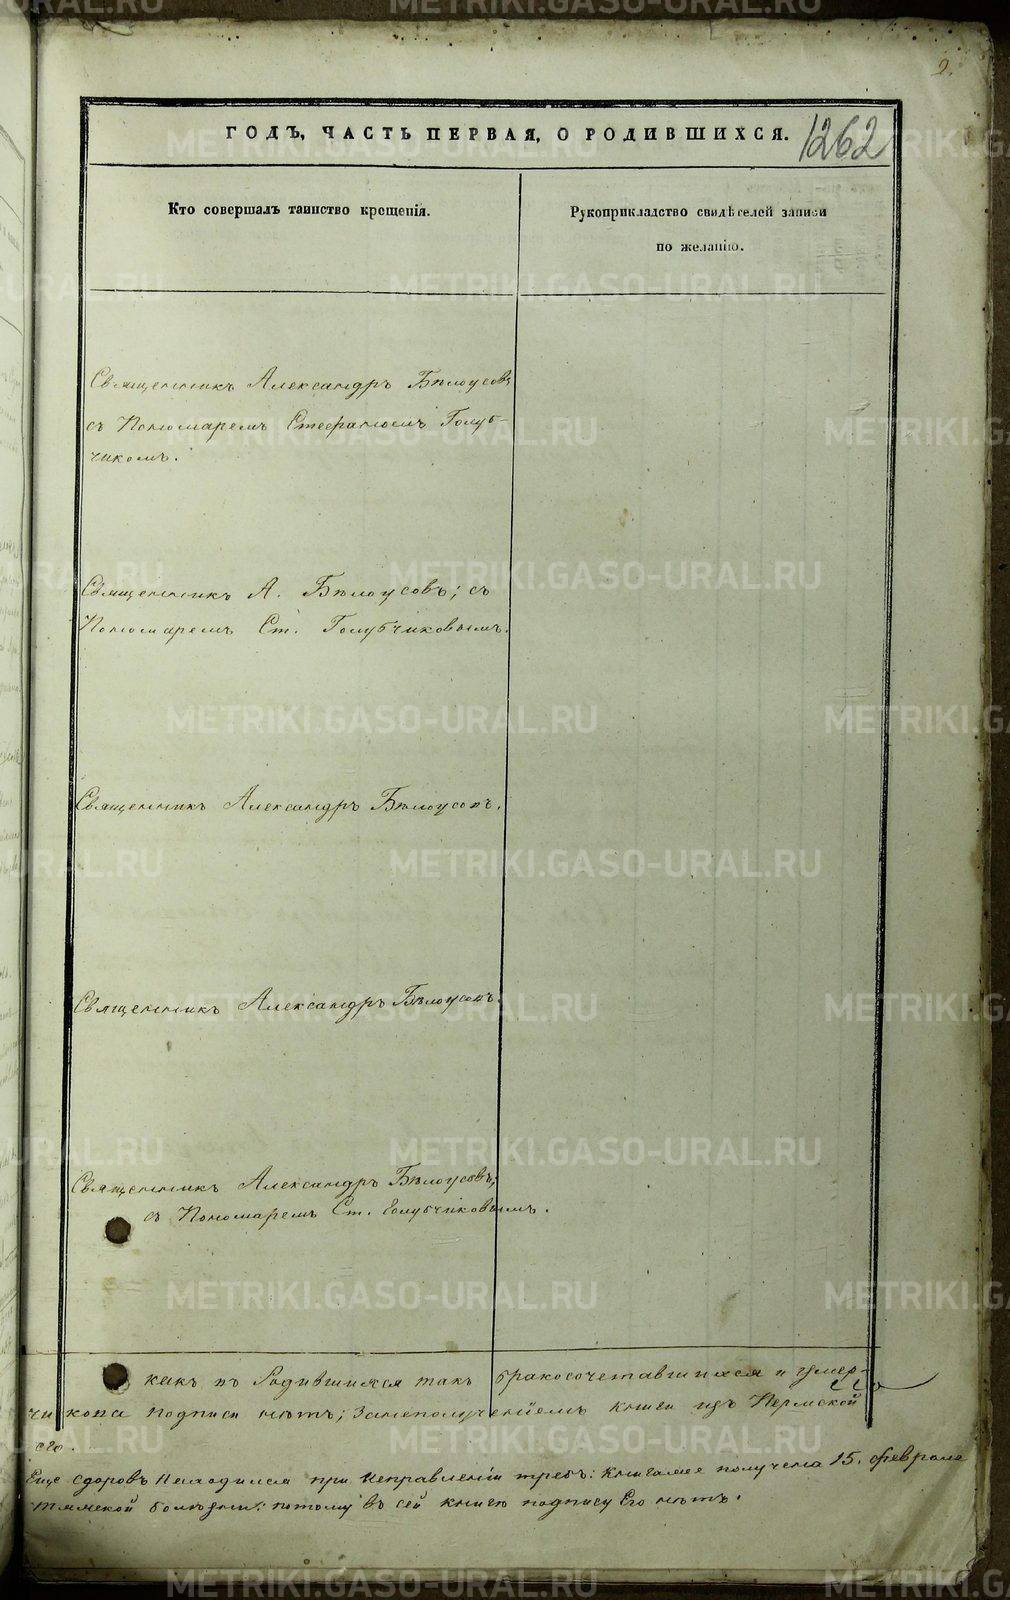 2.
ГОДЪ, ЧАСТЬ ПЕРВАЯ, О РОДИВШИХСЯ.
1262
Кто совершалъ таинство крещенія.
Рукоприкладство свидѣтелей записи
по желанію.
Священникъ Александръ Бѣлоусовъ,
съ Пономаремъ Стефаномъ Голуб-
чикомъ.
Священникъ А. Бѣлоусовъ; съ
Пономаремъ Ст. Голубчиковымъ.
Священникъ Александръ Бѣлоусовъ.
Священникъ Александръ Бѣлоусовъ.
Священникъ Александръ Бѣлоусовъ,
съ Пономаремъ Ст. Голубчиковымъ.
какъ въ Родившихся такъ бракосочетавшихся и умер-
чикова подписи нѣтъ; Занеполученіемъ книги изъ Пермской
его.
Еще здоровъ Находился при Исправленіи требъ: книга получена 15. февраля
болѣзни: потому въ сей книгѣ подписи Его нѣтъ.
METRIKI.GASO-URAL.RU